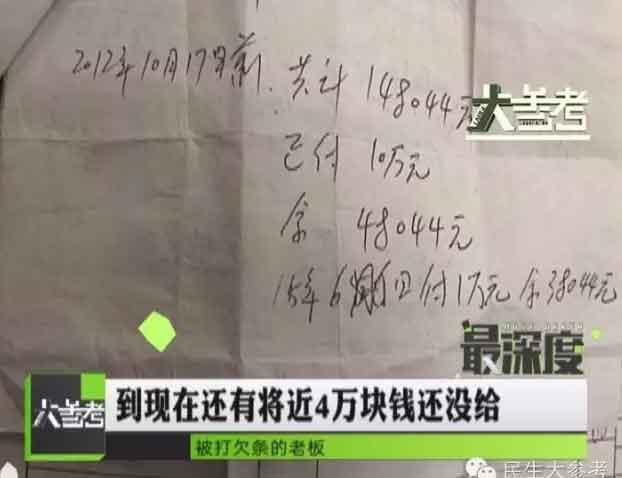 2012年10月17日前. 共计 148044元
大参考
已付 10万元
余 48044元
15年6月 日付1万元 余38044元
最深度
大参考
到现在还有将近4万块钱还没给
被打欠条的老板
民生大参考